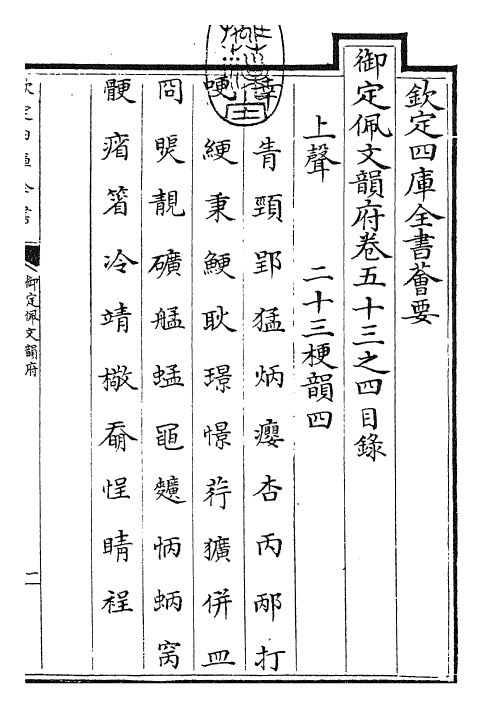 欽定四庫全書薈要
御定佩文韻府卷五十三之四目錄
上聲 二十三梗韻四
眚頸郢猛炳癭杏丙邴打
哽綆秉鯁耿璟憬荇獷倂皿
冏暻靚礦艋蜢黽𪍿怲蛃窉
骾㾪箵冷靖檠奣悜睛裎
御定佩文韻府
一